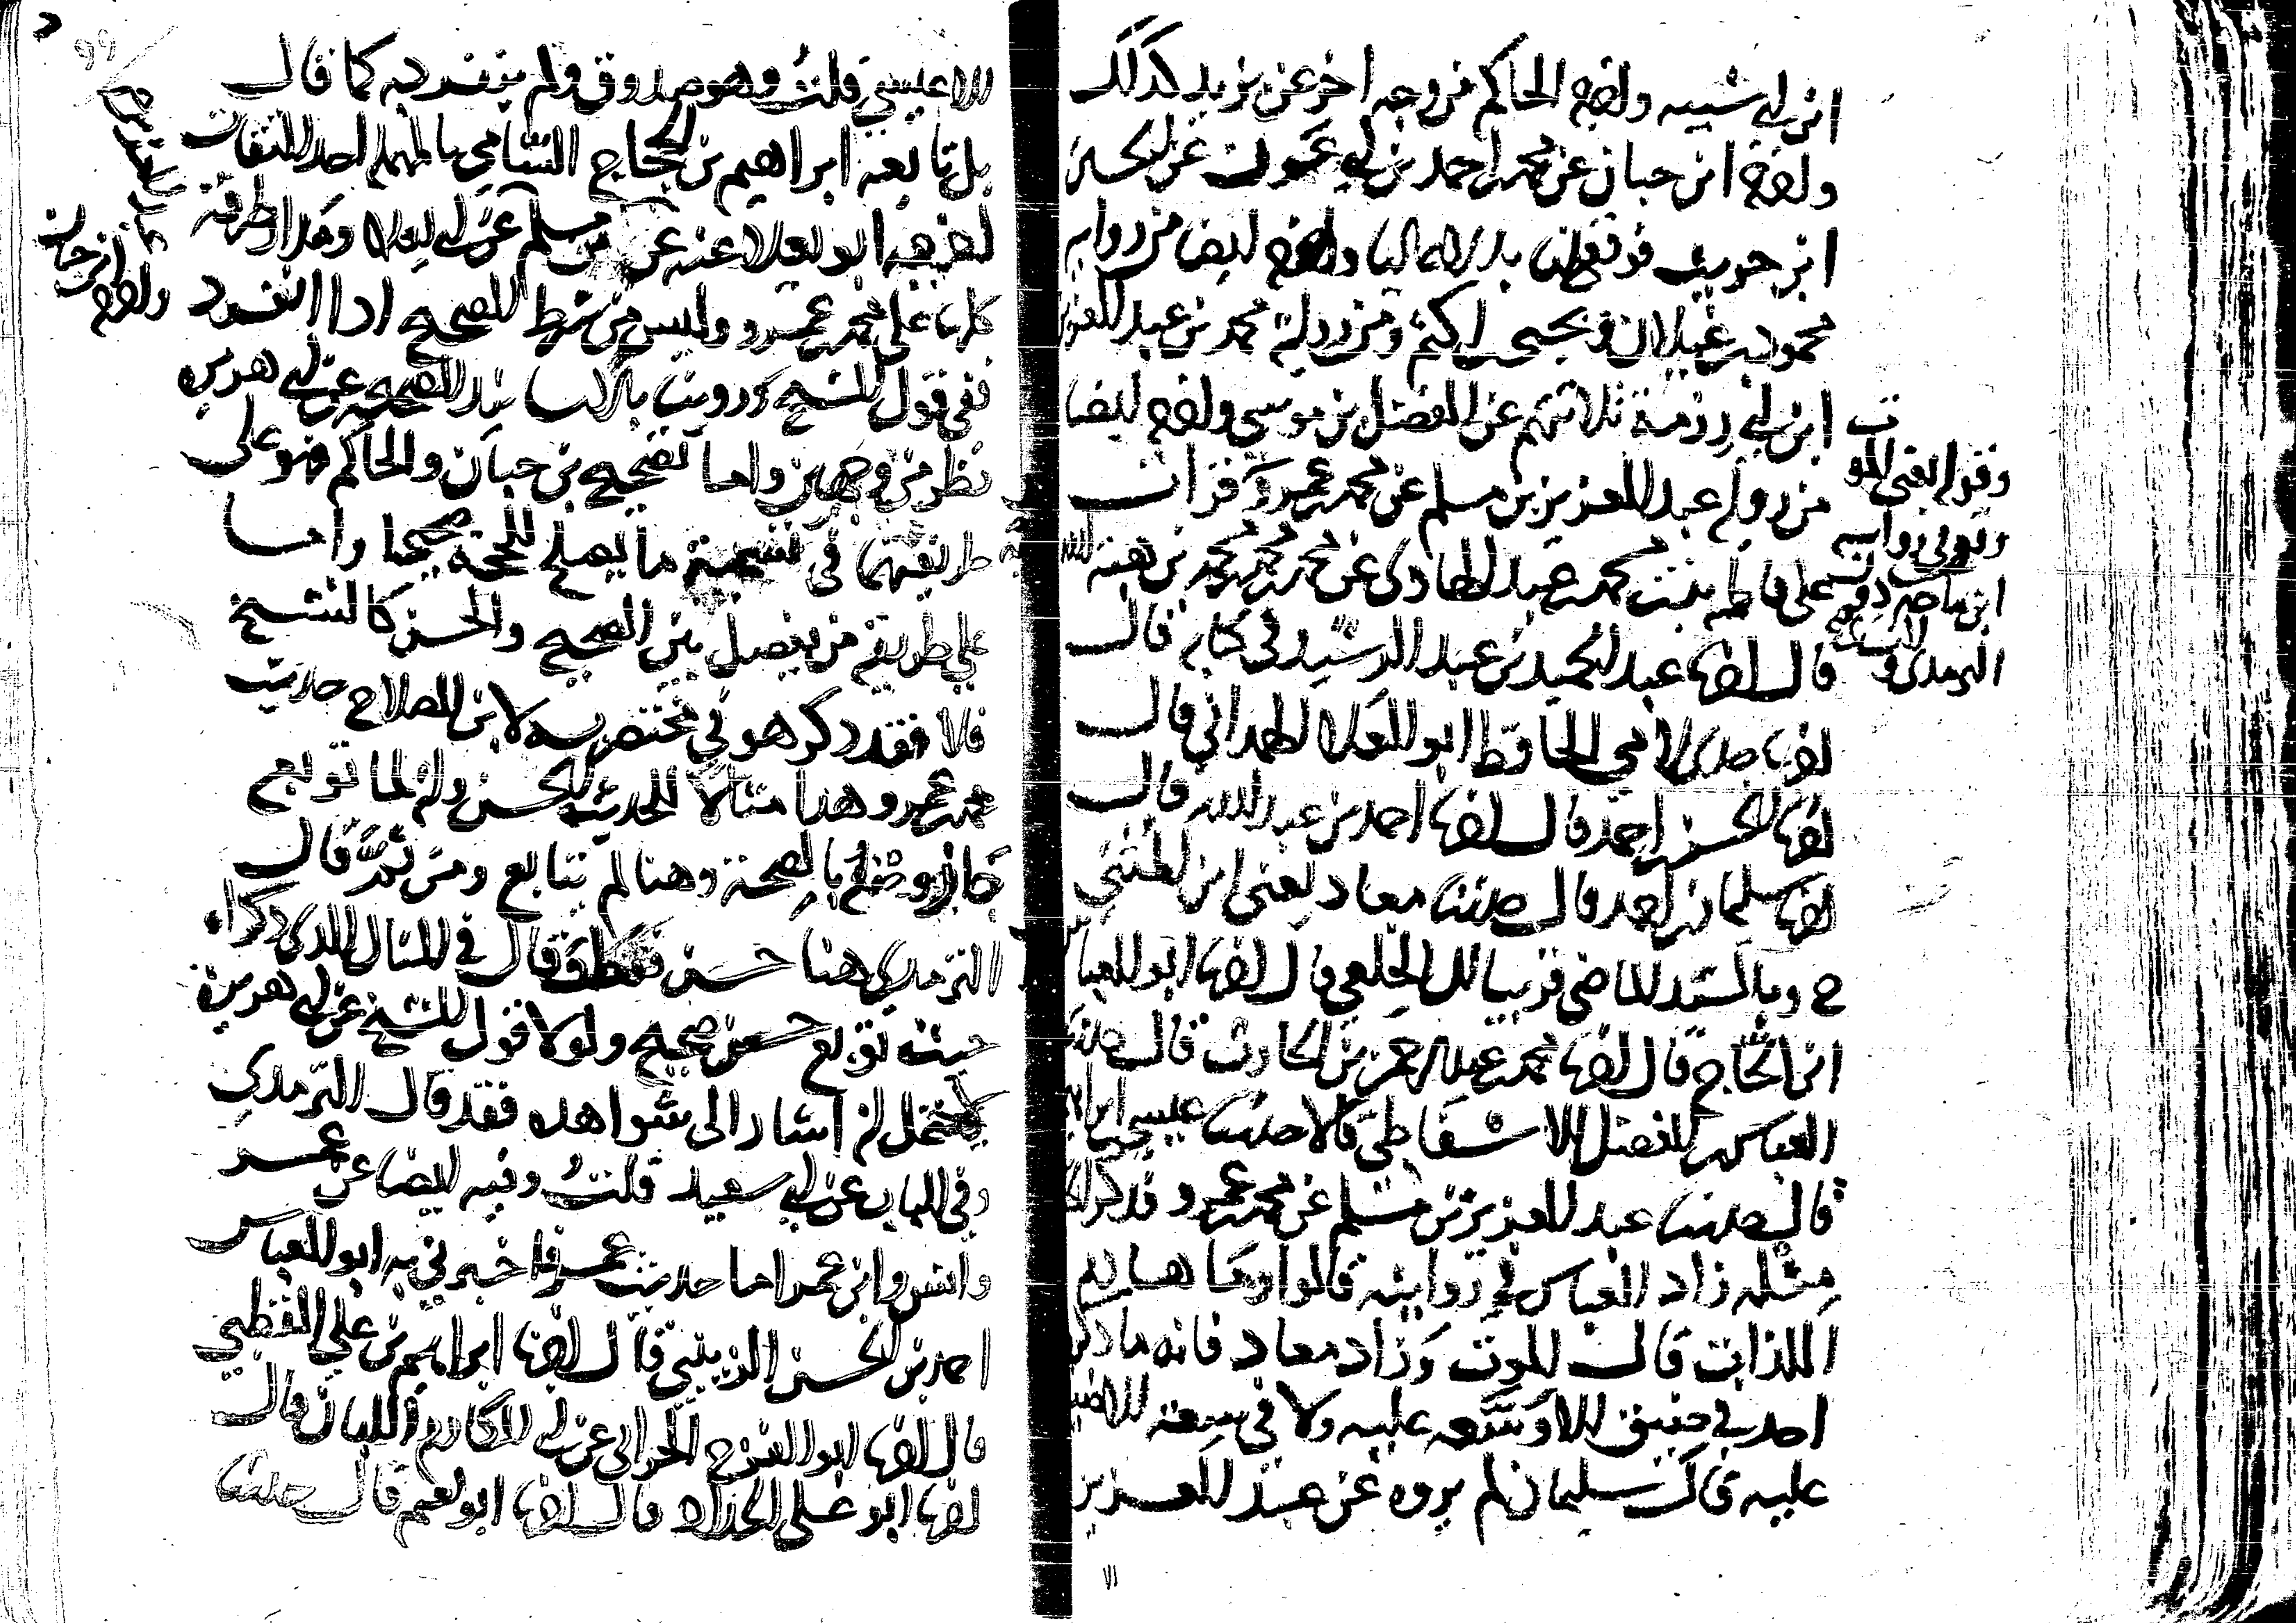 ابن أبي شيبه واخرجه الحاكم من وجه اخر عن يزيد كذلك
واخرجه ابن حبان عن محمد بن احمد بن أبي عون عن الحسين
ابن حريث فوقع لنا بدلا عاليا واخرجه ايضا من رواية
محمود بن غيلان ويحيى بن اكثم ومن رواية محمد بن عبد العزيز
ابن أبي رزمة ثلاثتهم عن الفضل بن موسى واخرجه ايضا
من رواية عبد العزيز بن مسلم عن محمد بن عمرو وقرأت
على فاطمة بنت محمد بن عبد الهادي عن محمد بن محمد بن محمد بن هبة الله
قال اخبرنا عبد الحميد بن عبد الرشيد في كتابه قال
اخبرنا جدي لأمي الحافظ ابو العلا الهمداني قال
اخبرنا الحسن بن احمد قال اخبرنا احمد بن عبد الله قال
اخبرنا سليمان بن احمد قال حدثنا معاذ يعني ابن المثنى
ح وبالسند الماضي قريبا الى الخلعي قال اخبرنا ابو العباس
ابن الحاج قال اخبرنا محمد بن عبد الرحمن بن الحارث قال حدثنا
العباس بن الفضل الاسفاطي قالا حدثنا عيسى بن ابراهيم
قال حدثنا عبد العزيز بن مسلم عن محمد بن عمرو فذكر
مثله زاد العباس في روايته قالوا وما هاذم
اللذات قال الموت وزاد معاذ فانه ما ذكره
احد في ضيق الا وسعه عليه ولا في سعة الا ضيقه
عليه قال سليمان لم يروه عن عبد العزيز
وقوله يعني الموت
ابن ماجه دون
الترمذي و
الا عيسى قلت وهو صدوق ولم ينفرد به كما قال
بل تابعه ابراهيم بن الحجاج السامي بالمهملة احد الثقات
اخرجه ابو يعلا عنه عن بن مسلم عن أبي يعلا ومدار طرقه
كلها على محمد بن عمرو وليس من شرط الصحيح اذا انفرد
ففي قول الشيخ وروينا بالاسانيد الصحيحة عن أبي هريره
نظر من وجهين واما تصحيح بن حبان والحاكم فهو على
طريقتهما في تسمية ما يصلح للحجة صحيحا واما
على طريقة من يفصل بين الصحيح والحسن كالشيخ
فلا فقد ذكر هو في مختصريه لابن الصلاح حديث
محمد بن عمرو هذا مثالا للحديث الحسن وانه لما توبع
جاز وصفه بالصحة وهنا لم يتابع ومن ثم قال
الترمذي هنا حسن فقط وقال في المثال الذي ذكراه
حيث توبع حسن صحيح ولولا قول الشيخ عن أبي هريرة
لاحتمل انه اشار الى شواهده فقد قال الترمذي
وفي الباب عن أبي سعيد قلت وفيه ايضا عن عمر
وانس وابن عمر اما حديث عمر فاخبرني به ابو العباس
احمد بن الحسن الزينبي قال اخبرنا ابراهيم بن علي القطبي
قال اخبرنا ابو الفرج الحراني عن أبي المكارم اللبان قال
اخبرنا ابو علي الحداد قال اخبرنا ابو نعيم قال حدثنا
واخرجه ابن حبان